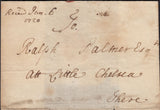 Recd Jan. 6
1720
To
Ralph Palmer Esqr
att Little Chelsea
There